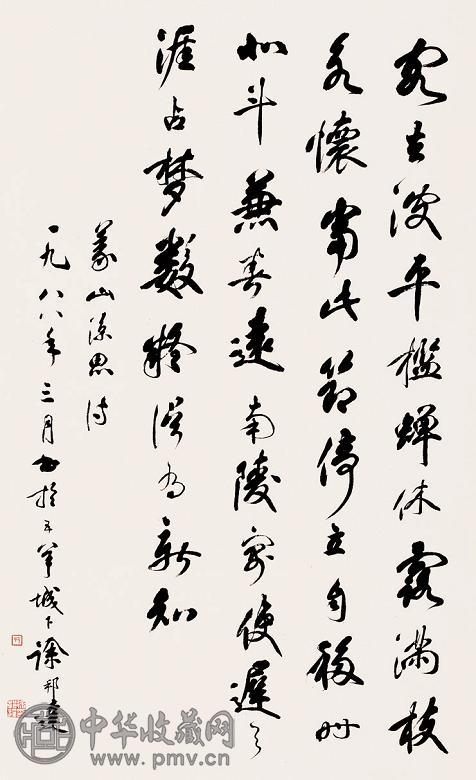 客去波平檻蟬休露滿枝
永懷當此節倚立自移時
北斗兼春遠南陵寓使遲天
涯占夢數疑誤有新知
義山涼思詩
一九八八年三月書於五羊城下徐邦達
中华收藏网
www.pmv.cn